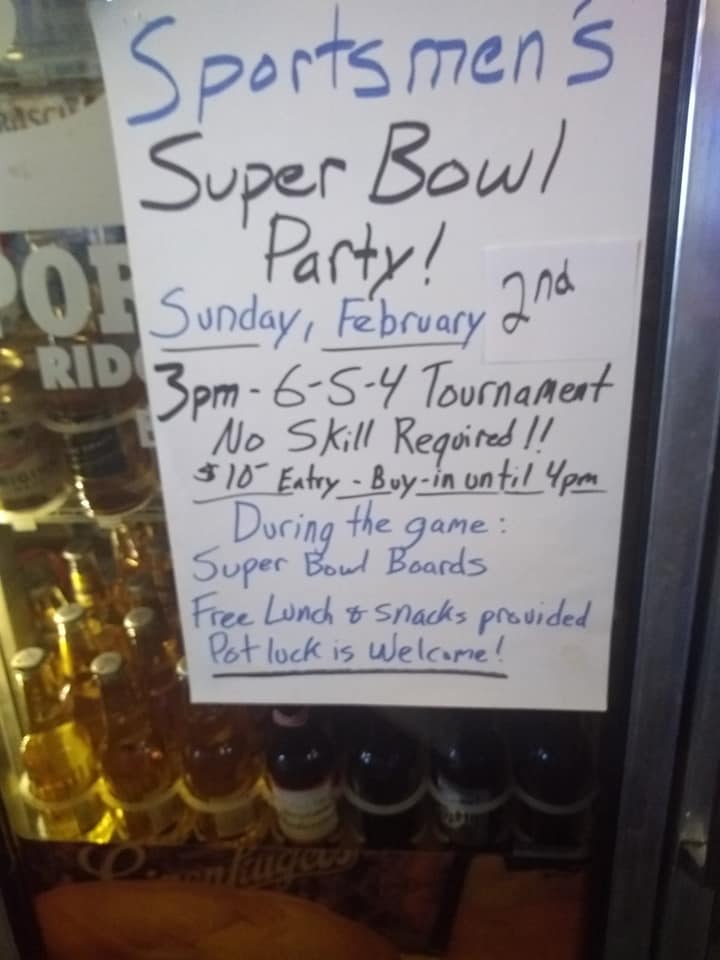 Sportsmen's
Super Bowl
Party!
Sunday, February 2nd
3pm - 6-5-4 Tournament
No Skill Required!!
$10- Entry - Buy-in until 4pm
During the game:
Super Bowl Boards
Free Lunch & snacks provided
Potluck is Welcome!
POR
RIDG